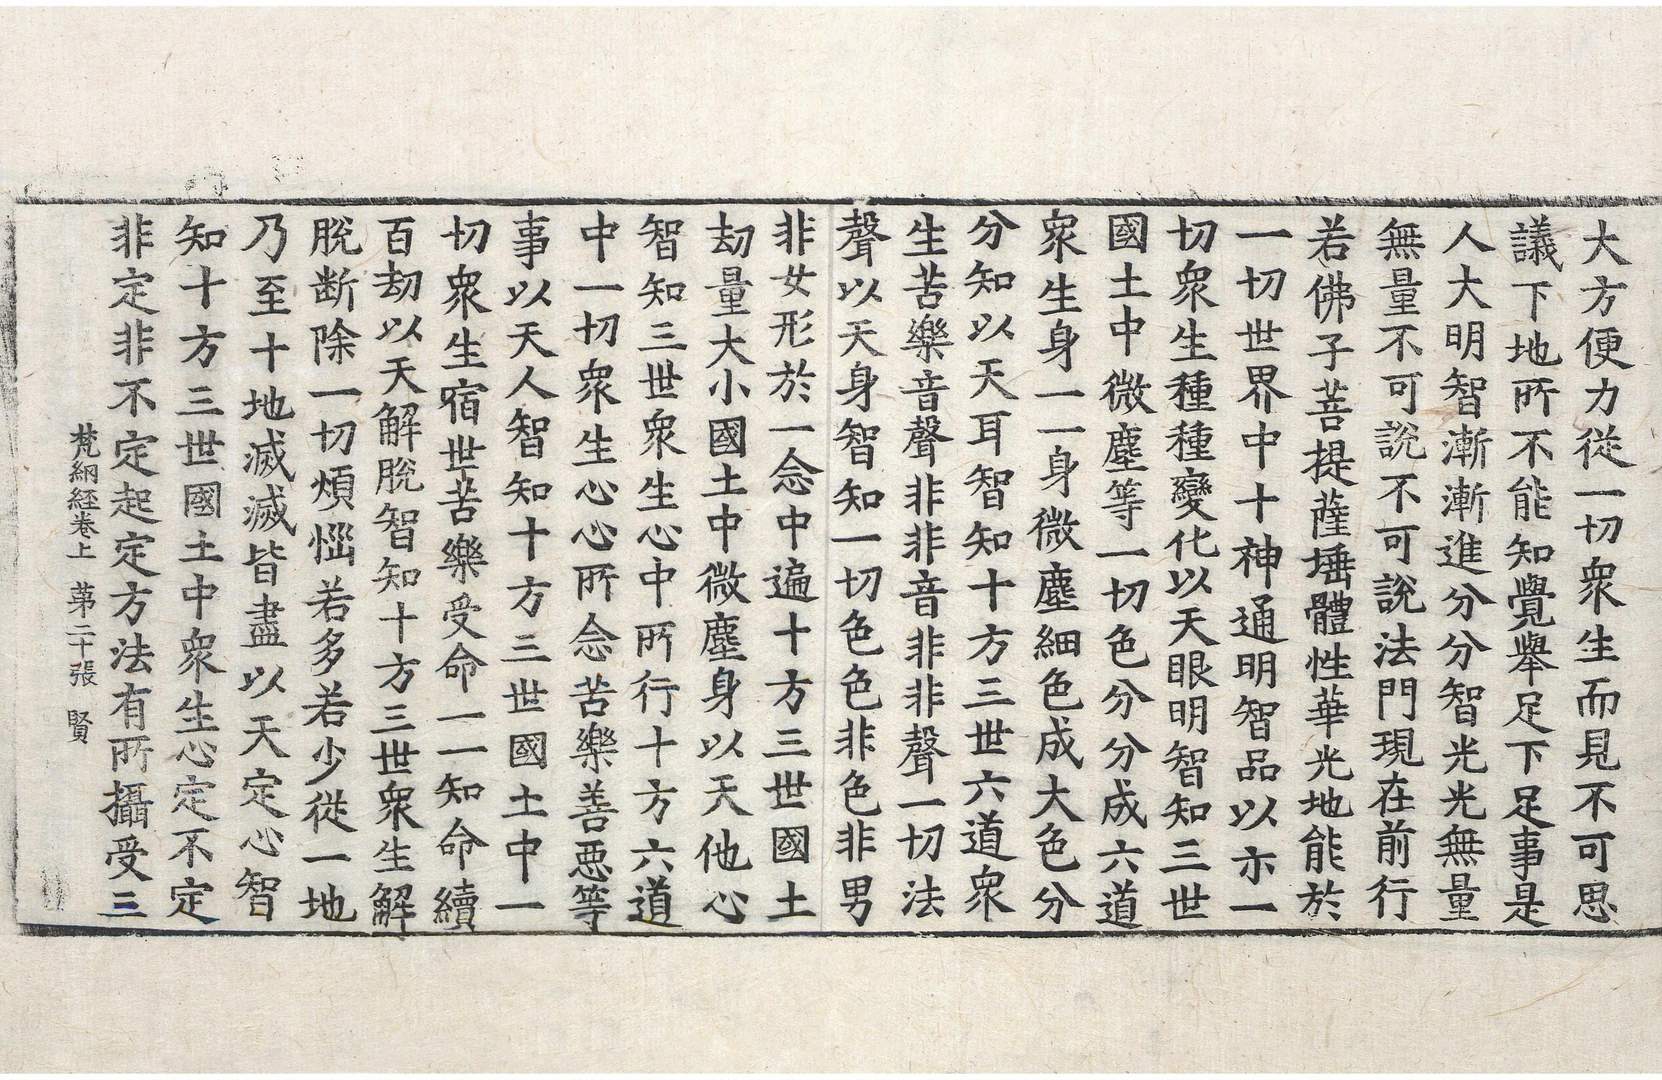 大方便力從一切衆生而見不可思
議下地所不能知覺舉足下足事是
人大明智漸漸進分分智光光無量
無量不可說不可說法門現在前行
若佛子菩提薩埵體性華光地能於
一切世界中十神通明智品以示一
切衆生種種變化以天眼明智知三世
國土中微塵等一切色分分成六道
衆生身一一身微塵細色成大色分
分知以天耳智知十方三世六道衆
生苦樂音聲非非音非非聲一切法
聲以天身智知一切色色非色非男
非女形於一念中遍十方三世國土
劫量大小國土中微塵身以天他心
智知三世衆生心中所行十方六道
中一切衆生心心所念苦樂善惡等
事以天人智知十方三世國土中一
切衆生宿世苦樂受命一一知命續
百劫以天解脫智知十方三世衆生解
脫斷除一切煩惱若多若少從一地
乃至十地滅滅皆盡以天定心智
知十方三世國土中衆生心定不定
非定非不定起定方法有所攝受三
梵網経卷上 第二十張 賢